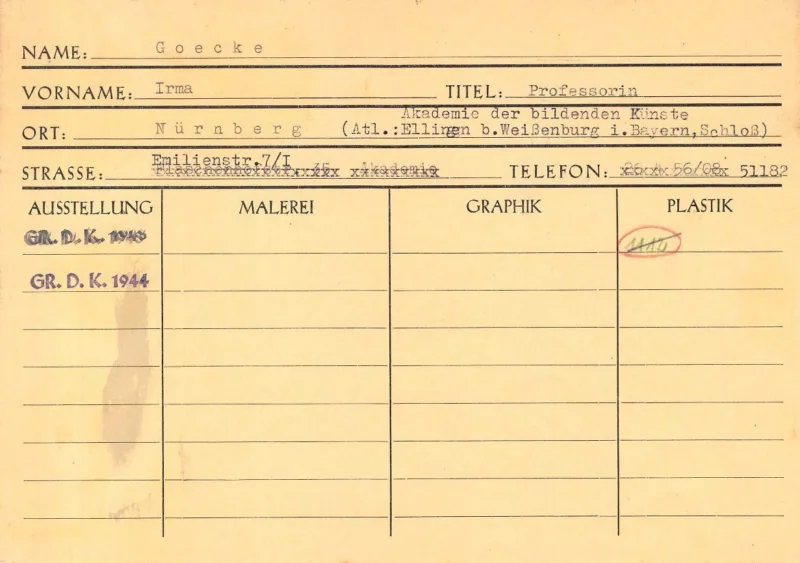 NAME: Goecke
VORNAME: Irma TITEL: Professorin
Akademie der bildenden Künste
ORT: Nürnberg (Atl.:Ellingen b.Weißenburg i.Bayern,Schloß)
Emilienstr.7/I
STRASSE: 35 Akademie TELEFON: 56/08 51182
AUSSTELLUNG MALEREI GRAPHIK PLASTIK
GR. D. K. 1943 1114
GR. D. K. 1944